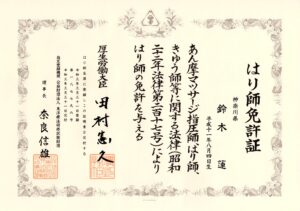 はり師免許証
神奈川県
鈴木蓮
平成十一年八月四日生
あん摩マツサージ指圧師、はり師、
きゆう師等に関する法律(昭和
二十二年法律第二百十七号)により
はり師の免許を与える
厚生労働大臣 田村憲久
理事長 奈良信雄